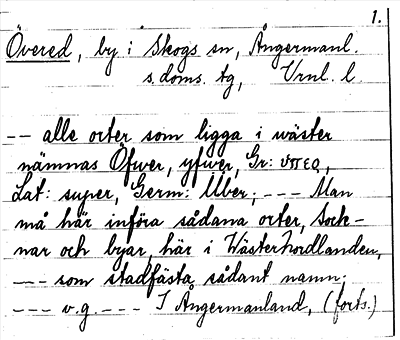 1.
Övered, by i Skogs sn, Ångermanl.
s. doms. tg, Vrnl. l.
-- alle orter som ligga i wäster
nämnas Öfwer, yfwer, Gr: ὑπερ,
Lat: super, Germ: Über; --- Man
må här införa sådana orter, Sock-
nar och byar, här i Wästerhordlanden,
--- som stadfästa sådant namn.
--- v.g. --- I Ångermanland, (forts.)